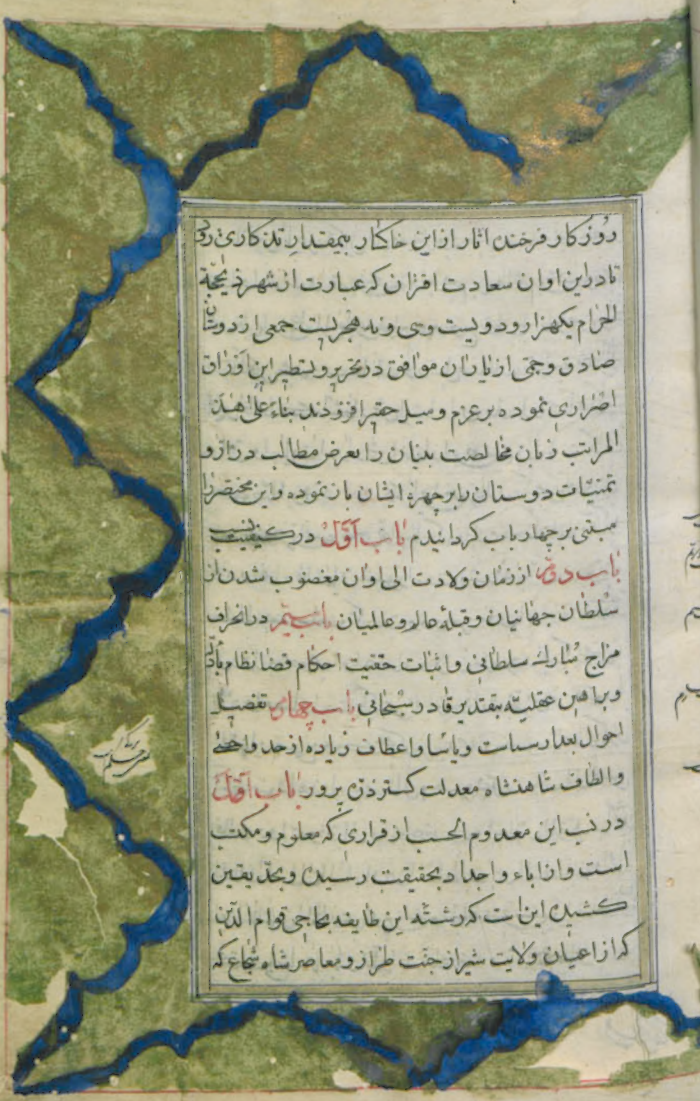 روزکار فرخنده اثار از این خاکسار بیمقدار تذکاری رود
تا در این اوان سعادت اقتران که عبارت از شهر ذیحجة
الحرام یکهزار و دویست و سی و نه هجریست جمعی از دوستان
صادق و جمعی از یاران موافق در تحریر و تسطیر این اوراق
اصراری نموده بر عزم و میل حقیر افزودند بناء علی هذه
المراتب زبان مخالصت بنیان را بعرض مطالب دراز و
تمنیّات دوستان را بر چهره ایشان باز نموده و این مختصر را
مبتنی بر چهار باب کردانیدم باب اوّل در کیفیت نسب
باب دویّم از زمان ولادت الی اوان مغضوب شدن از
سلطان جهانیان و قبلهٔ عالم و عالمیان باب سیّم در انحراف
مزاج مبارک سلطانی و اثبات حقیت احکام قضا نظام بأدلّه
و براهین عقلیّه بتقدیر قادر سبحانی باب چهارم تفصیل
احوال بعد از سیاست و یاسا و اعطاف زیاده از حد و احصی
و الطاف شاهنشاه معدلت کستر ذره پرور باب اوّل
در نسب این معدوم الحسب از قراری که معلوم و مکتب
است و از اباء و اجداد بحقیقت رسیده و بحدّ یقین
کشیده این است که رشته این طایفه بحاجی قوام الدّین
که از اعیان ولایت شیراز جنت طراز و معاصر شاه شجاع که